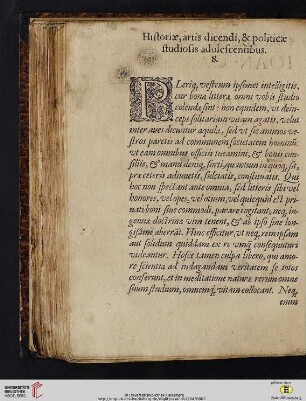 Historiæ, artis dicendi, & politicæ
studiosis adolescentibus.
S.
PLeriq, vestrum ipsimet intelligitis,
cur bonæ litteræ omni vobis studio
colendæ sint: non equidem, vt dein-
ceps solitariam vitam agatis, velut
inter aues dicuntur aquilæ, sed vt sic animos ve-
stros paretis ad communem societatem hominũ,
vt eam omnibus officiis iuuamini, & bonis con-
siliis, & manu deniq, forti, quantum in quoq, sit,
præ ceteris adiuuetis, fulciatis, constituatis. Qui
hoc non spectant ante omnia, sed litteris sibi vel
honores, vel opes, vel otium, vel quicquid est pri-
uati boni siue commodi, parare cogitant; neq, in-
genuæ doctrinæ vim tenent, & ab ipso fine lon-
gissimè aberrãt. Hinc efficitur, vt neq, rem ipsam
aut solidum quiddam ex re vmquã consequuturi
videantur. Hosce tamen culpa libero, qui amo-
re scientiæ ad indagandam veritatem se totos
conferunt, et in meditatione naturæ rerum omne
suum studium, omnemq, vitam collocant. Neq,
enim
UNIVERSITÄTS-
BIBLIOTHEK
HEIDELBERG